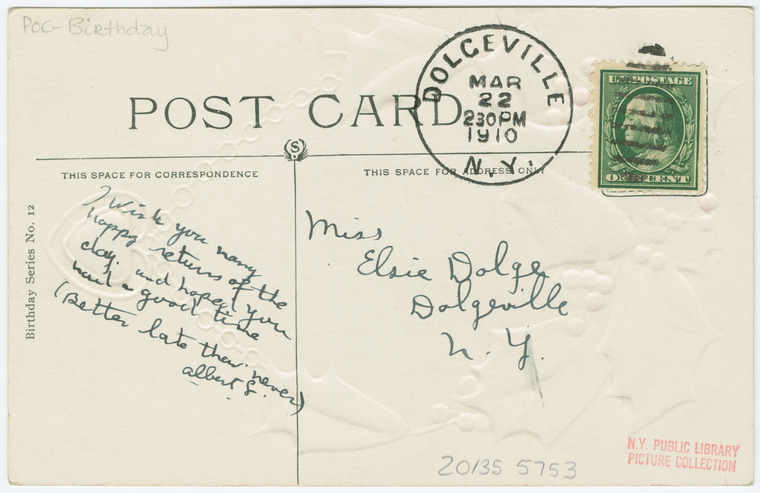 POC-Birthday
POST CARD
DOLGEVILLE
MAR
22
230PM
1910
N.Y.
U.S. POSTAGE
ONE CENT
S
THIS SPACE FOR CORRESPONDENCE
THIS SPACE FOR ADDRESS ONLY
I Wish you many
happy returns of the
day. and hope you
had a good time
(Better late than never)
albert S.
Miss
Elsie Dolge
Dolgeville
N. Y.
Birthday Series No. 12
20135 5753
N.Y. PUBLIC LIBRARY
PICTURE COLLECTION